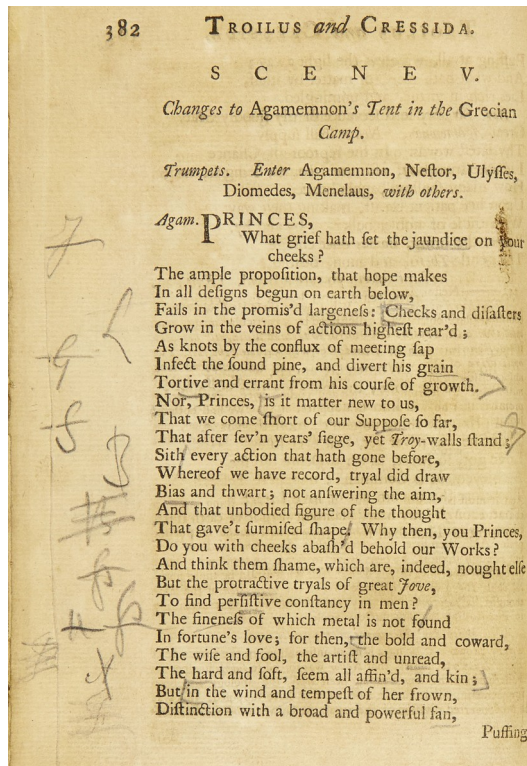 382 TROILUS and CRESSIDA.
SCENE V.
Changes to Agamemnon's Tent in the Grecian
Camp.
Trumpets. Enter Agamemnon, Neſtor, Ulyſſes,
Diomedes, Menelaus, with others.
Agam. PRINCES,
What grief hath ſet the jaundice on your
cheeks?
The ample propoſition, that hope makes
In all deſigns begun on earth below,
Fails in the promis'd largeneſs: Checks and diſaſters
Grow in the veins of actions higheſt rear'd;
As knots by the conflux of meeting ſap
Infect the ſound pine, and divert his grain
Tortive and errant from his courſe of growth.
Nor, Princes, is it matter new to us,
That we come ſhort of our Suppoſe ſo far,
That after ſev'n years' ſiege, yet Troy-walls ſtand;
Sith every action that hath gone before,
Whereof we have record, tryal did draw
Bias and thwart; not anſwering the aim,
And that unbodied figure of the thought
That gave't ſurmiſed ſhape. Why then, you Princes,
Do you with cheeks abaſh'd behold our Works?
And think them ſhame, which are, indeed, nought elſe
But the protractive tryals of great Jove,
To find perſiſtive conſtancy in men?
The fineneſs of which metal is not found
In fortune's love; for then, the bold and coward,
The wiſe and fool, the artiſt and unread,
The hard and ſoft, ſeem all affin'd, and kin;
But in the wind and tempeſt of her frown,
Diſtinction with a broad and powerful fan,
Puffing